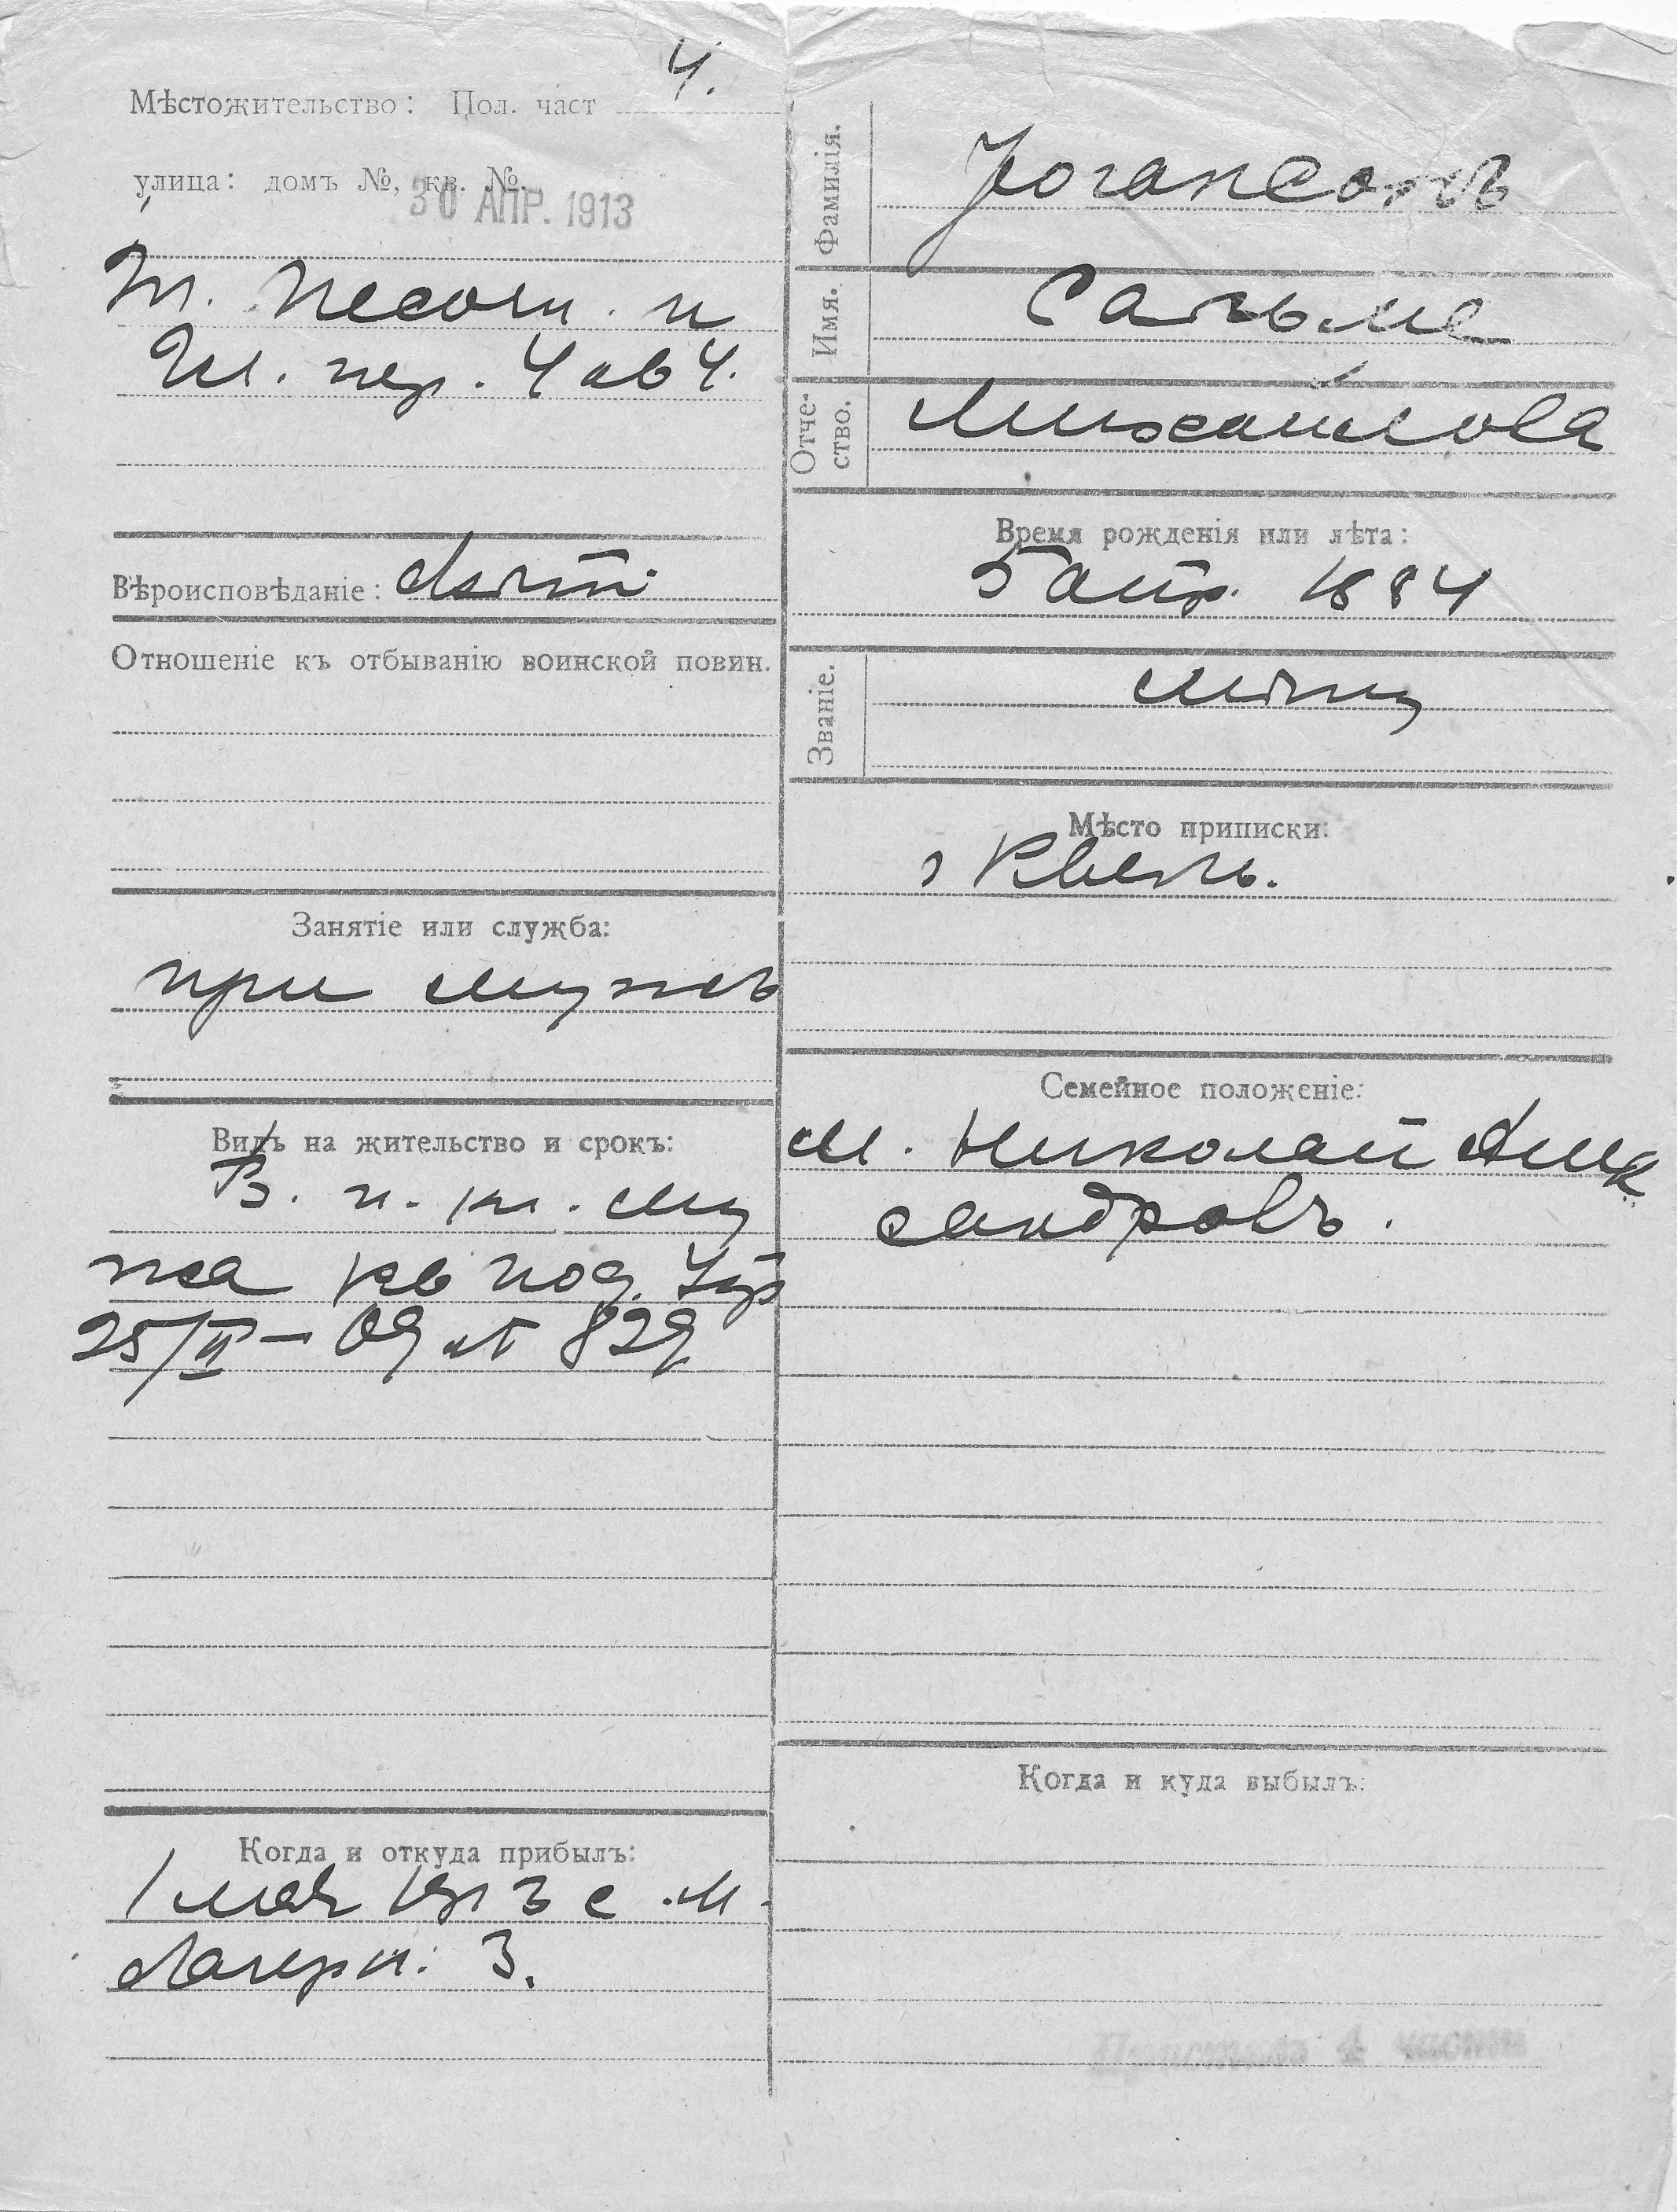 4.
Мѣстожительство: Пол. част
улица: домъ №, кв. №.
30 АПР. 1913
Т. Песочн. и
Ш. пер. 4 кв 4.
Вѣроисповѣданіе: Лют.
Отношеніе къ отбыванію воинской повин.
Занятіе или служба:
при мужѣ
Видъ на жительство и срокъ:
В. п. кн. му
жа Рев под. Упр
25/II – 09 № 829
Когда и откуда прибылъ:
1 мая 1913 с. М.
Лагерн. 3.
Фамилія. Іогансонъ
Имя. Сальме
Отче-
ство. Михайлова
Время рожденія или лѣта:
5 апр. 1884
Званіе. мѣщ
Мѣсто приписки:
г Ревель.
Семейное положеніе:
м. Николай Алек
сандровъ.
Когда и куда выбылъ:
Пристава 4 части